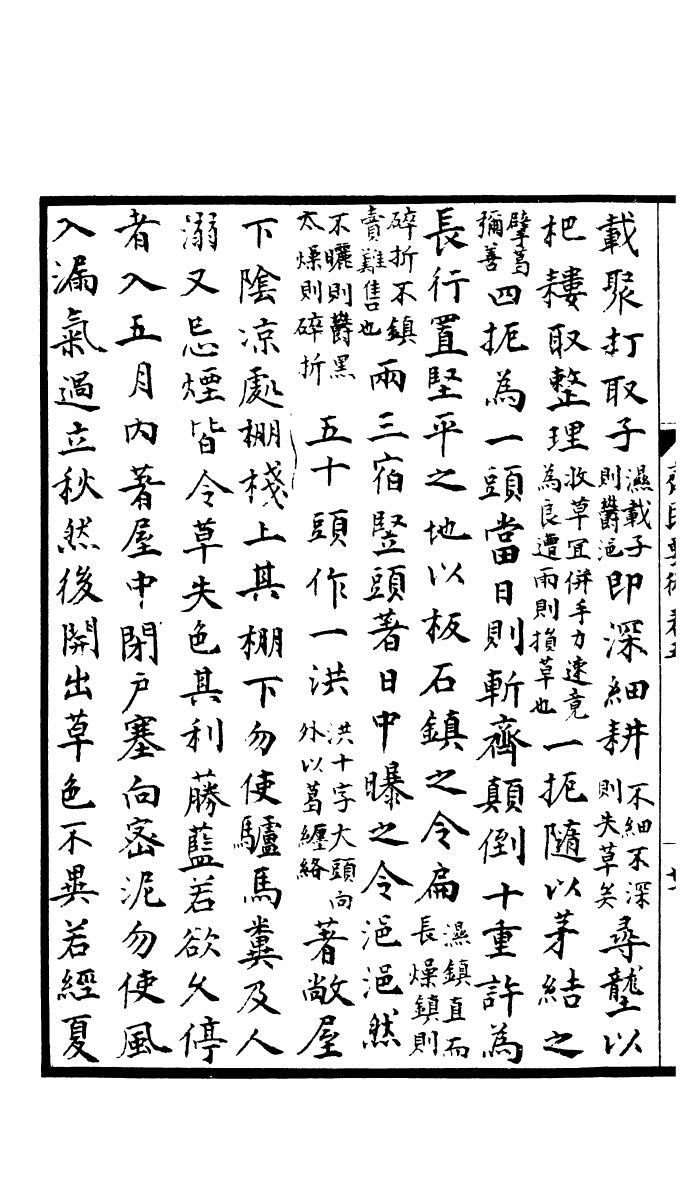 載聚打取子濕載子則鬱浥即深細耕不細不深則失草矣尋壟以
杷耬取整理收草宜併手力速竟為良遭雨則損草也一扼隨以茅結之
擘葛彌善四扼為一頭當日則斬齊顛倒十重許為
長行置堅平之地以板石鎮之令扁濕鎮直而長燥鎮則
碎折不鎮賣難售也兩三宿竪頭著日中曝之令浥浥然
不曬則鬱黑太燥則碎折五十頭作一洪洪十字大頭向外以葛纏絡著敞屋
下陰凉處棚棧上其棚下勿使驢馬糞及人
溺又忌煙皆令草失色其利勝藍若欲久停
者入五月內著屋中閉户塞向密泥勿使風
入漏氣過立秋然後開出草色不異若經夏